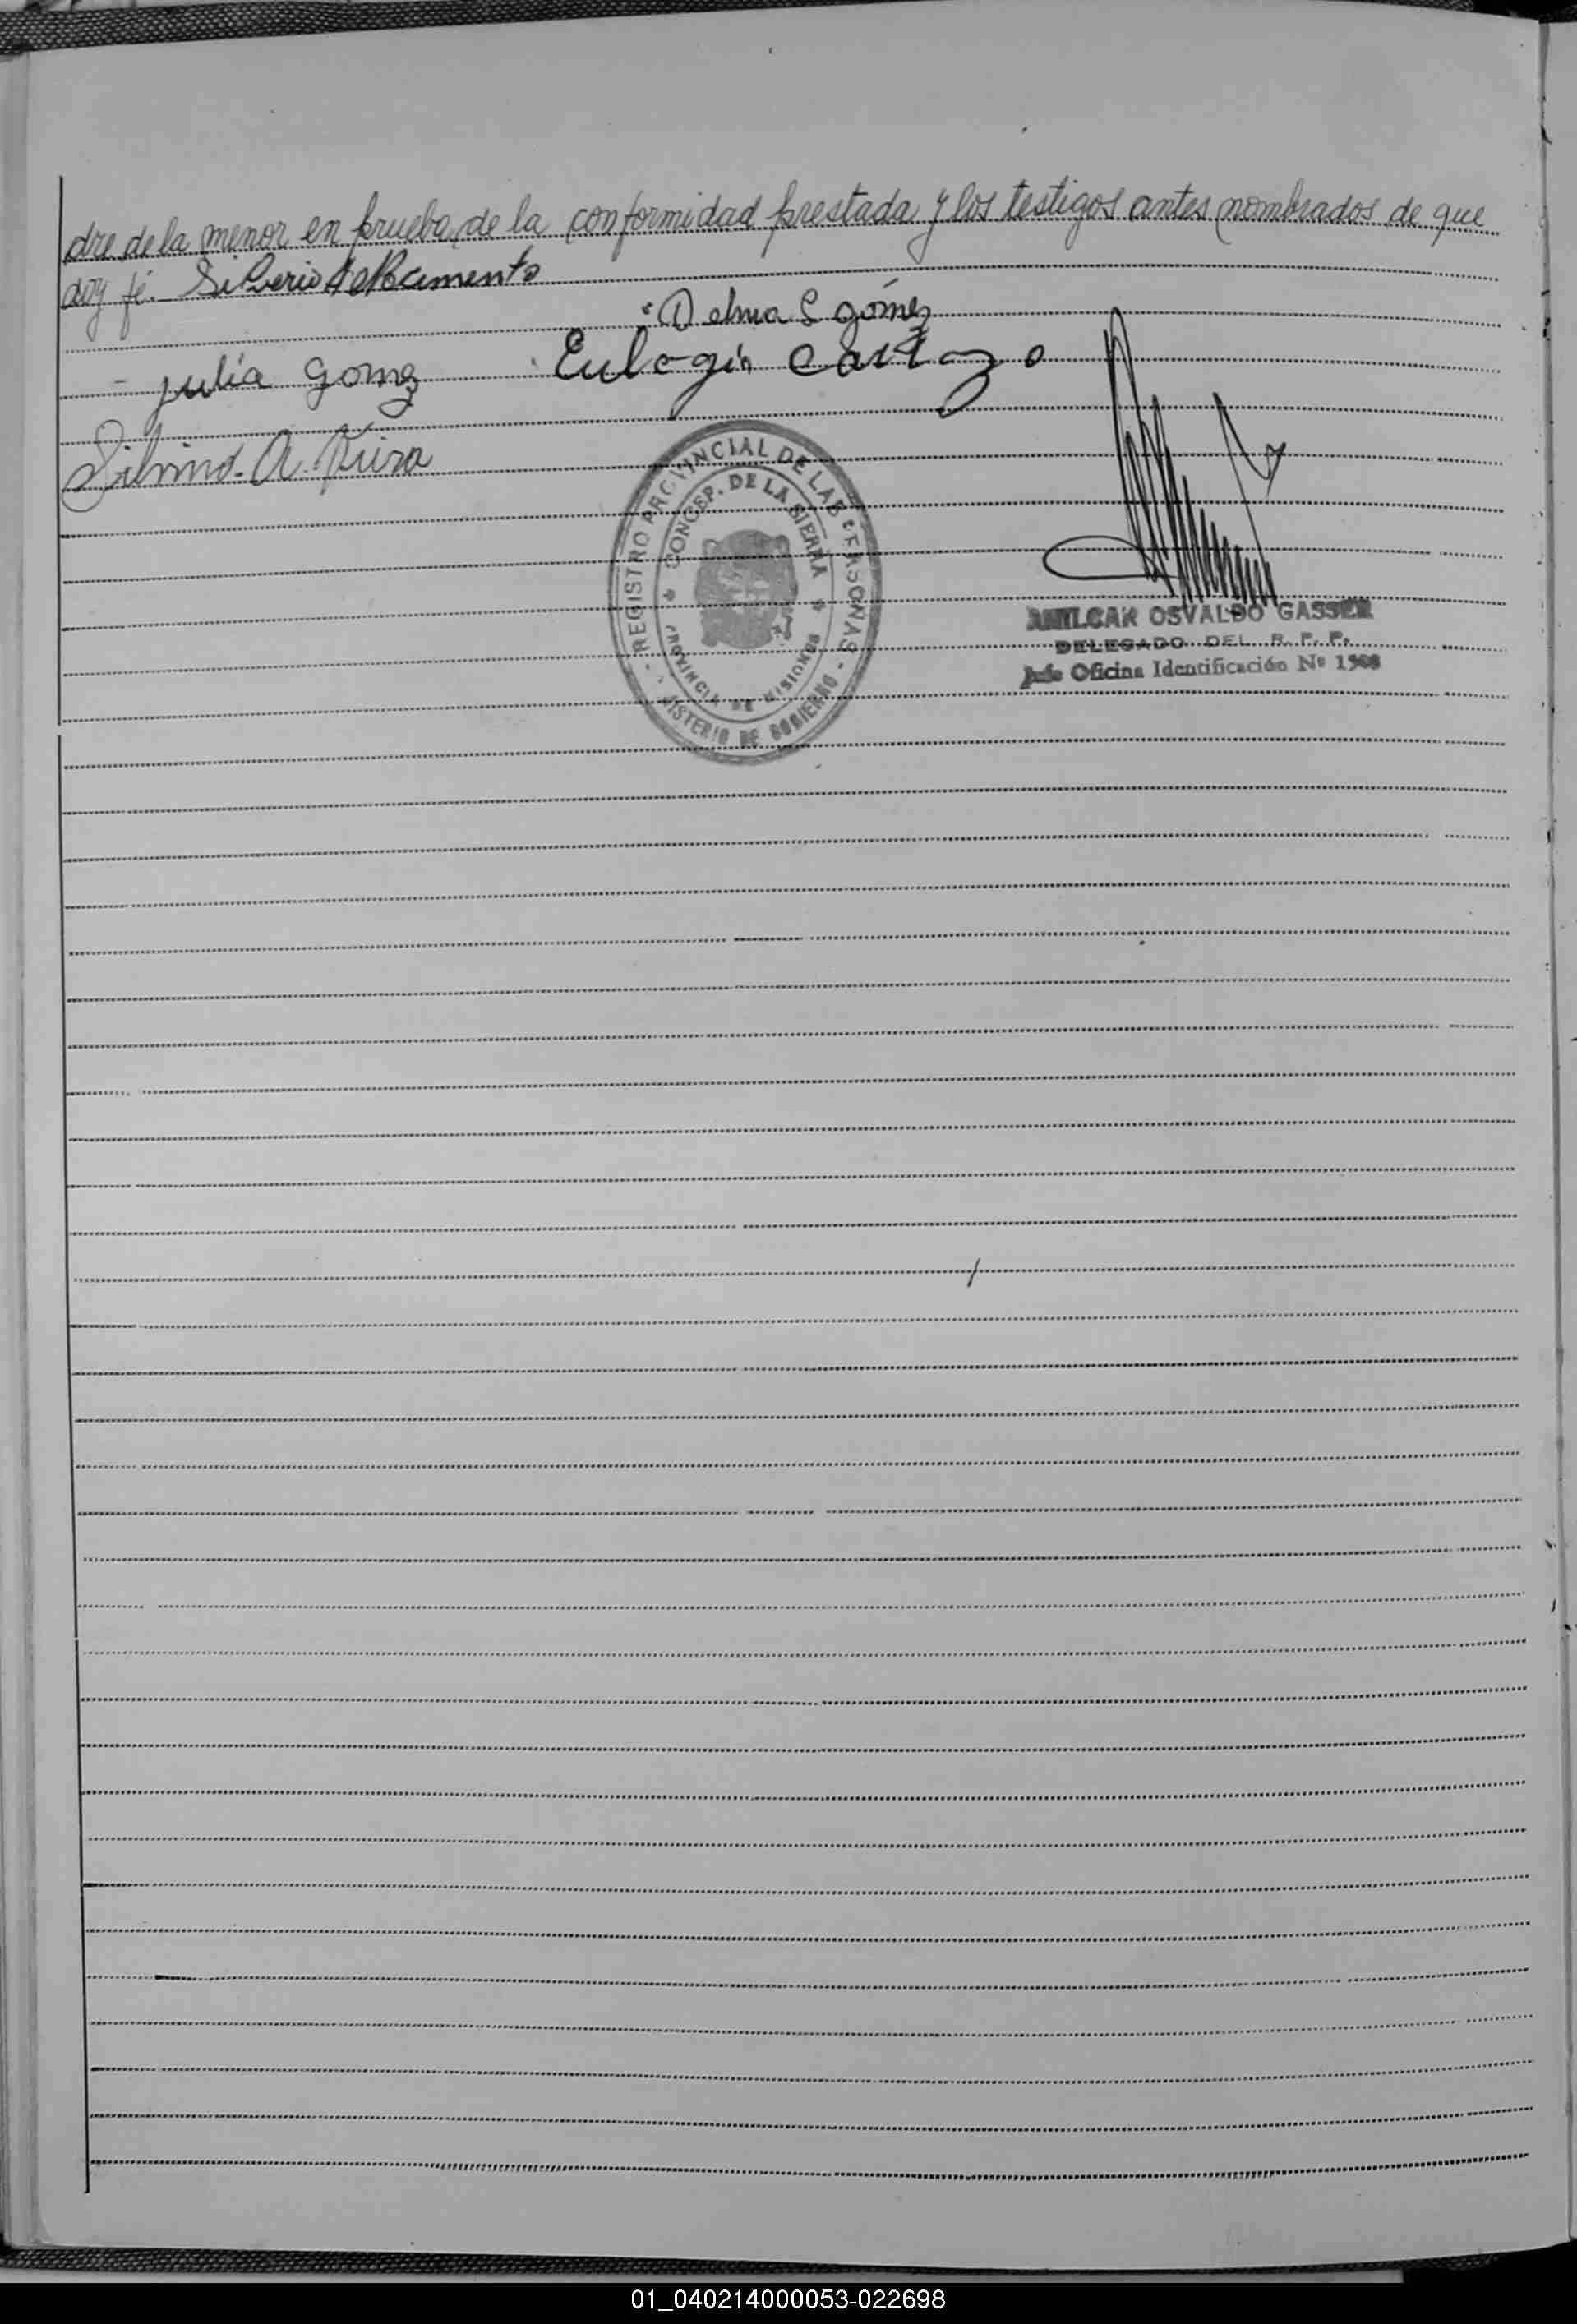 dre de la menor en prueba de la conformidad prestada y los testigos antes nombrados de que
doy fé.
Delma S gómez
julia gomez
Eulogio Cardozo
Silvino A.
REGISTRO PROVINCIAL DE LAS PERSONAS
CONCEP. DE LA SIERRA
PROVINCIA DE MISIONES
MISTERIO DE GOBIERNO
AMILCAR OSVALDO GASSER
DELEGADO DEL R. P. P.
Jefe Oficina Identificación Nº 1908
01_040214000053-022698